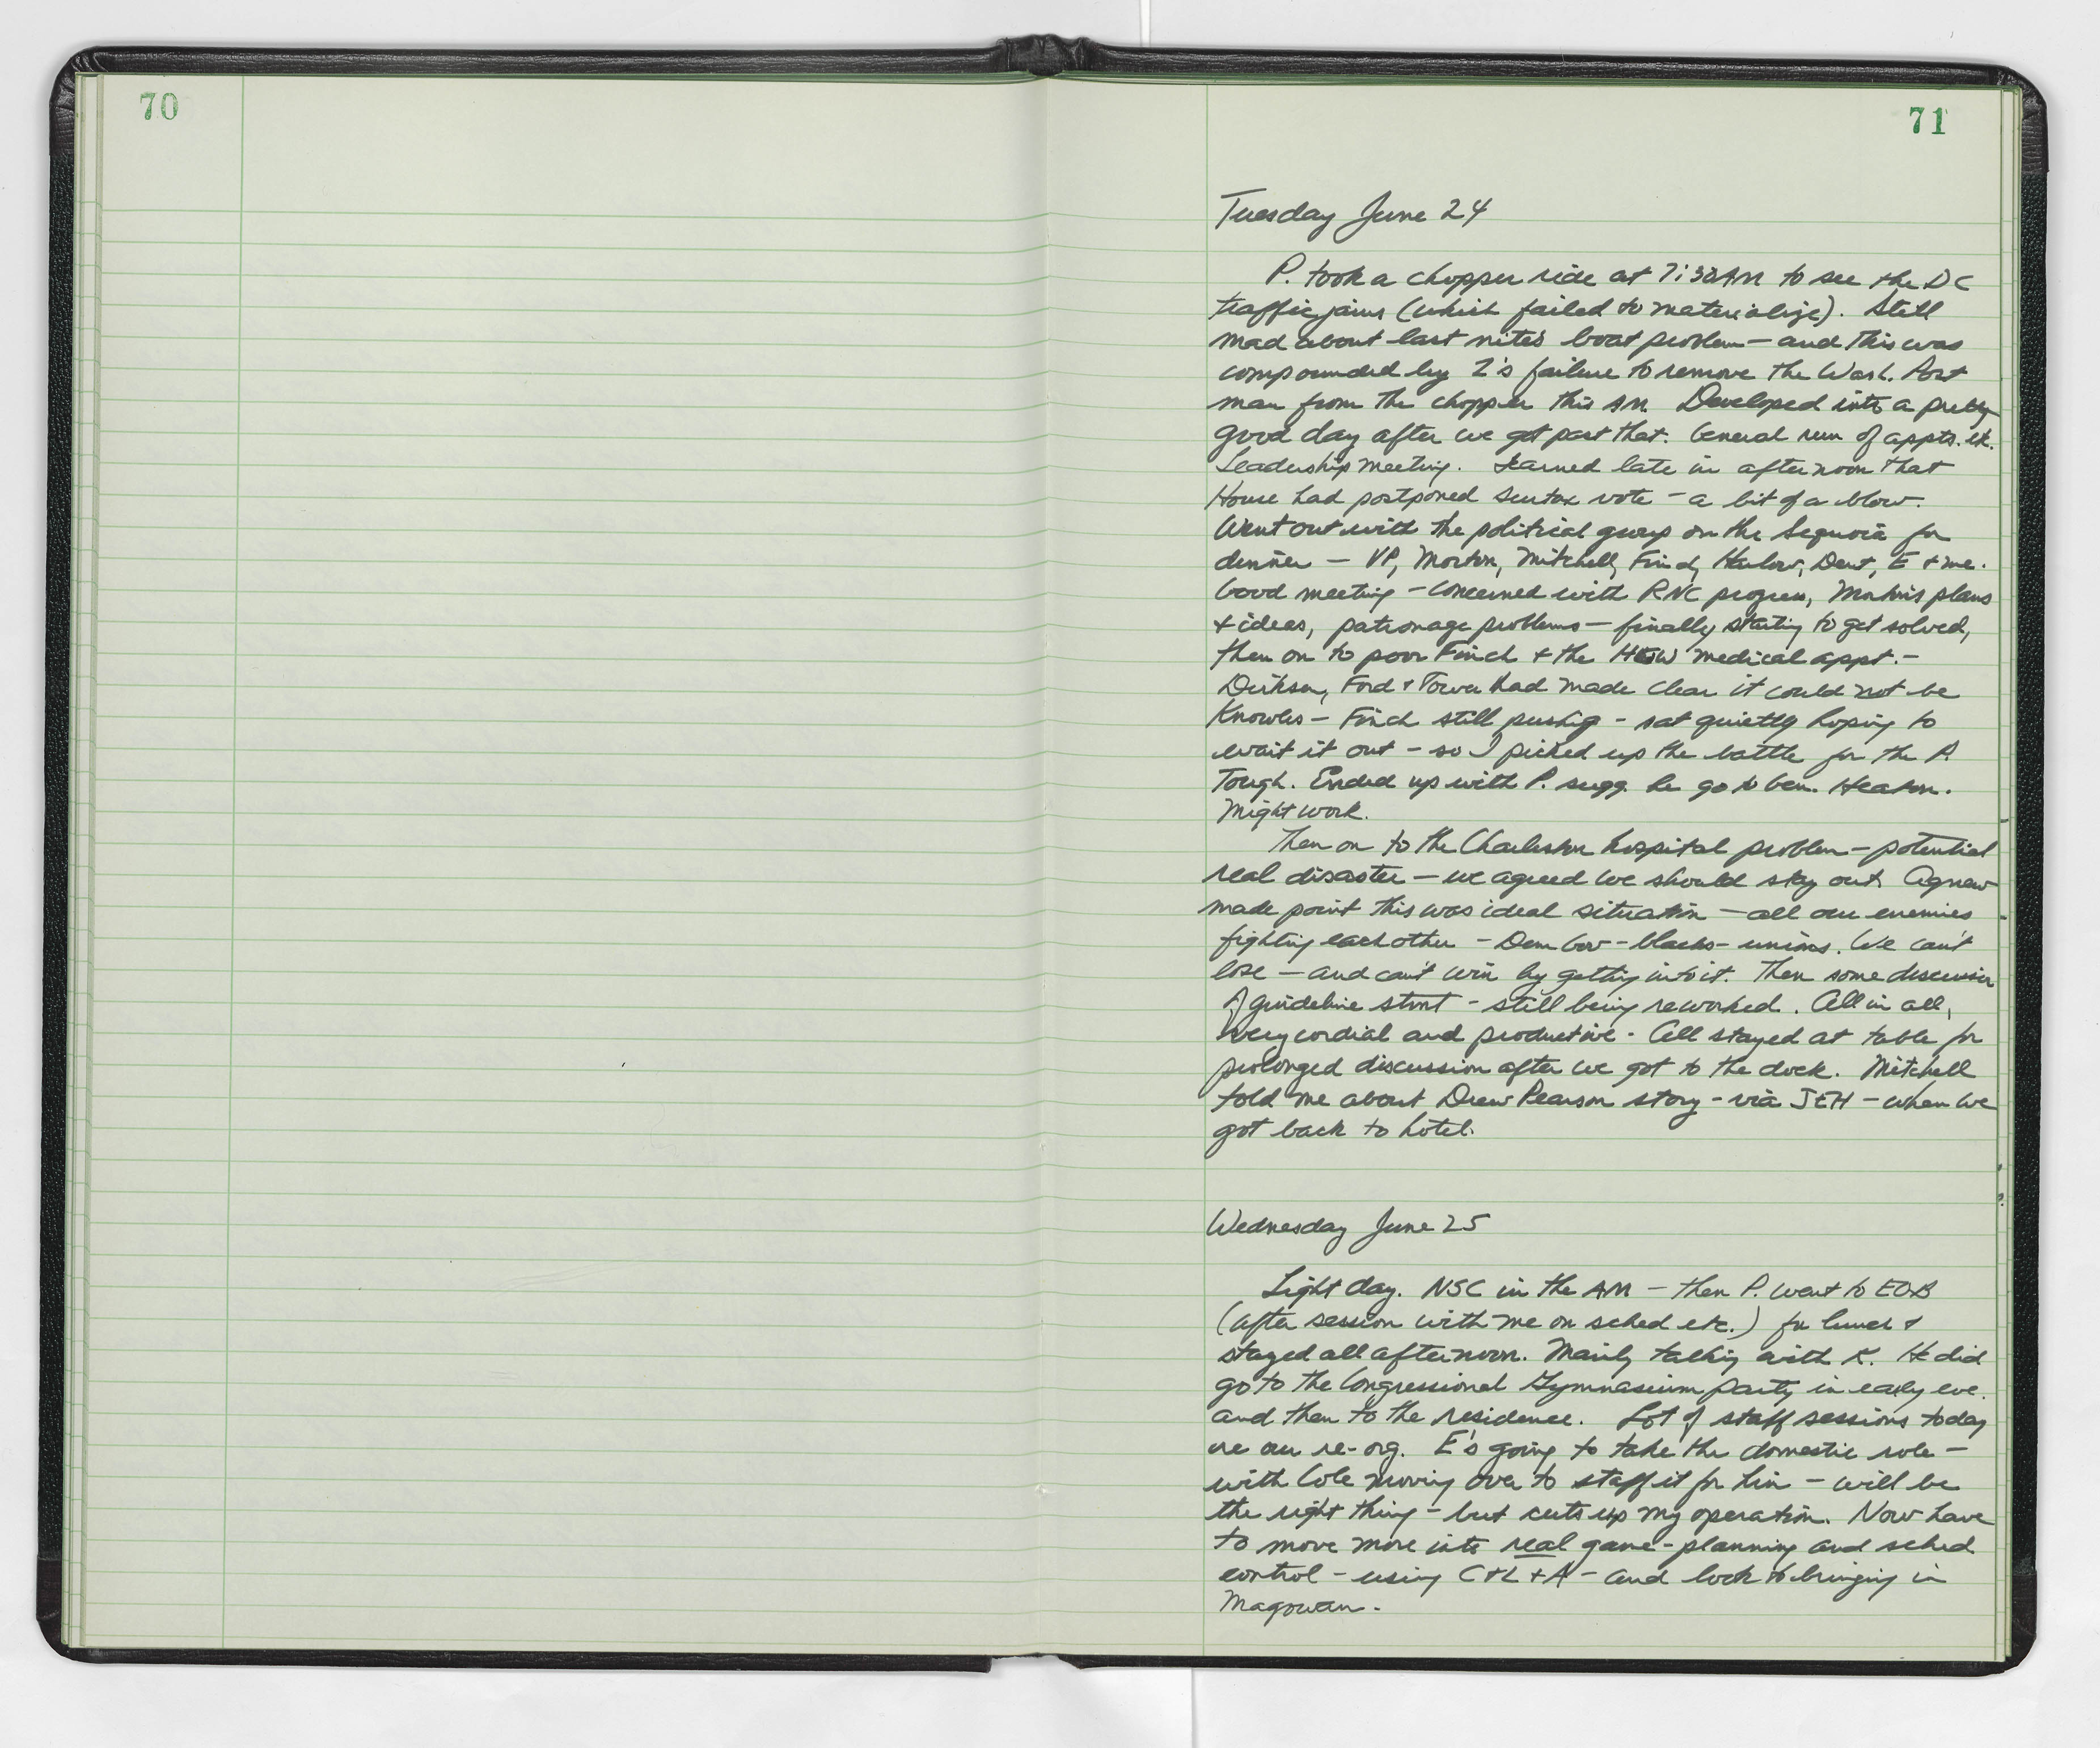 70
71
Tuesday June 24
P. took a chopper ride at 7:30AM to see the DC
traffic jams (which failed to materialize). Still
mad about last nite's boat problem — and this was
compounded by Z's failure to remove the Wash. Post
man from the chopper this AM. Developed into a pretty
good day after we got past that. General run of appts. etc.
Leadership meeting. Learned late in afternoon that
House had postponed surtax vote - a bit of a blow.
Went out with the political group on the Sequoia for
dinner — VP, Morton, Mitchell, Finch, Harlow, Dent, E + me.
Good meeting - concerned with RNC progress, Morton's plans
+ ideas, patronage problems — finally starting to get solved,
then on to poor Finch + the HEW medical appt. -
Dirksen, Ford + Tower had made clear it could not be
Knowles - Finch still pushing - sat quietly hoping to
wait it out - so I picked up the battle for the P.
Tough. Ended up with P. sugg. he go to Gen. Heaton.
Might work.
Then on to the Charleston hospital problem - potential
real disaster — we agreed we should stay out. Agnew
made point this was ideal situation — all our enemies
fighting each other - Dem Gov - blacks - unions. We can't
lose — and can't win by getting into it. Then some discussion
of guideline stmt - still being reworked. All in all,
very cordial and productive. All stayed at table for
prolonged discussion after we got to the dock. Mitchell
told me about Drew Pearson story - via JEH - when we
got back to hotel.
Wednesday June 25
Light day. NSC in the AM — then P. went to EOB
(after session with me on sched etc.) for lunch +
stayed all afternoon. Mainly talking with K. He did
go to the Congressional Gymnasium party in early eve.
and then to the residence. Lot of staff sessions today
re our re-org. E's going to take the domestic role —
with Cole moving over to staff it for him - will be
the right thing - but cuts up my operation. Now have
to move more into real game-planning and sched
control - using C + L + A - and look to bringing in
Magowan.